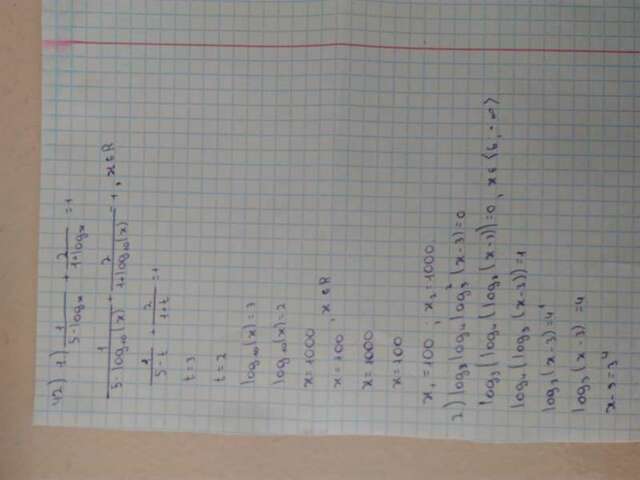 42) 1.) 1/(5-log x) + 2/(1+log x) = 1
1/(5-log₁₀(x)) + 2/(1+log₁₀(x)) = 1, x∈R
1/(5-t) + 2/(1+t) = 1
t=3
t=2
log₁₀(x)=3
log₁₀(x)=2
x=1000
x=100, x∈R
x=1000
x=100
x₁=100; x₂=1000
2) log₃ log₄ log₃ (x-3)=0
log₃(log₄(log₃(x-3)))=0, x∈
log₄(log₃(x-3))=1
log₃(x-3)=4¹
log₃(x-3)=4
x-3=3⁴